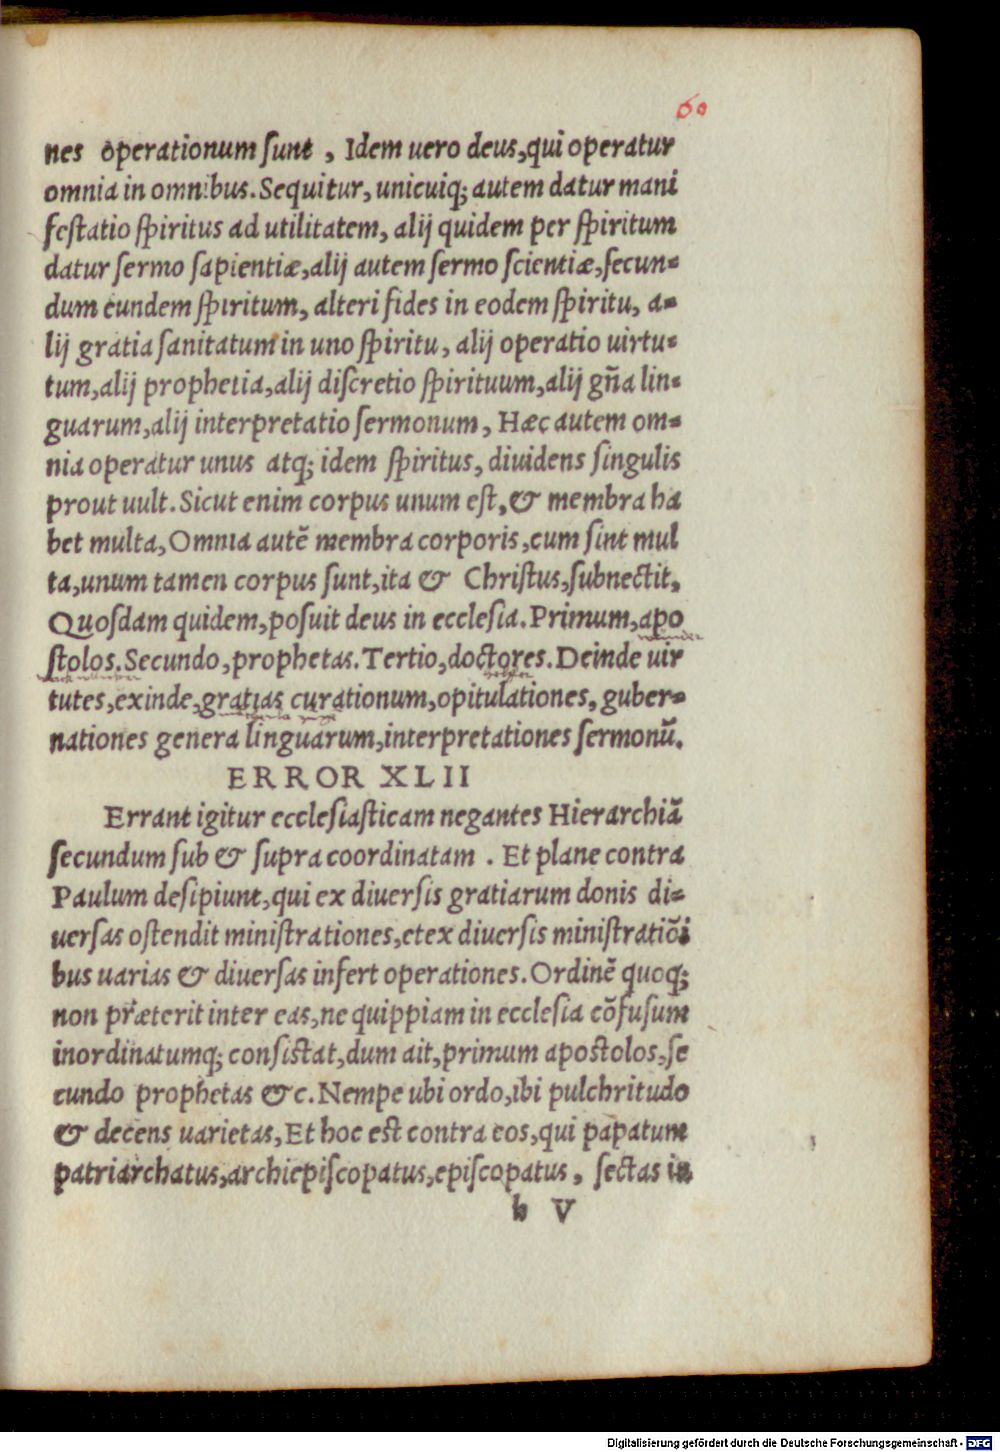 60
nes operationum sunt , Idem uero deus,qui operatur
omnia in omnibus. Sequitur, unicuiq; autem datur mani
festatio spiritus ad utilitatem, alij quidem per spiritum
datur sermo sapientiæ,alij autem sermo scientiæ,secun=
dum eundem spiritum, alteri fides in eodem spiritu, a=
lij gratia sanitatum in uno spiritu, alij operatio uirtu=
tum,alij prophetia,alij discretio spirituum,alij gña lin=
guarum,alij interpretatio sermonum, Hæc autem om=
nia operatur unus atq; idem spiritus, diuidens singulis
prout uult. Sicut enim corpus unum est,& membra ha
bet multa,Omnia autē membra corporis,cum sint mul
ta,unum tamen corpus sunt,ita & Christus,subnectit,
Quosdam quidem,posuit deus in ecclesia. Primum,apo
stolos. Secundo,prophetas. Tertio,doctores. Deinde uir
tutes,exinde,gratias curationum,opitulationes, guber=
nationes genera linguarum,interpretationes sermonū.
ERROR XLII
Errant igitur ecclesiasticam negantes Hierarchiā
secundum sub & supra coordinatam . Et plane contra
Paulum desipiunt,qui ex diuersis gratiarum donis di=
uersas ostendit ministrationes,et ex diuersis ministratiōi
bus uarias & diuersas infert operationes. Ordinē quoq;
non præterit inter eas,ne quippiam in ecclesia cōfusum
inordinatumq; consistat,dum ait,primum apostolos,se
cundo prophetas &c. Nempe ubi ordo,ibi pulchritudo
& decens uarietas,Et hoc est contra eos,qui papatum
patriarchatus,archiepiscopatus,episcopatus, sectas in
h V
Digitalisierung gefördert durch die Deutsche Forschungsgemeinschaft - DFG